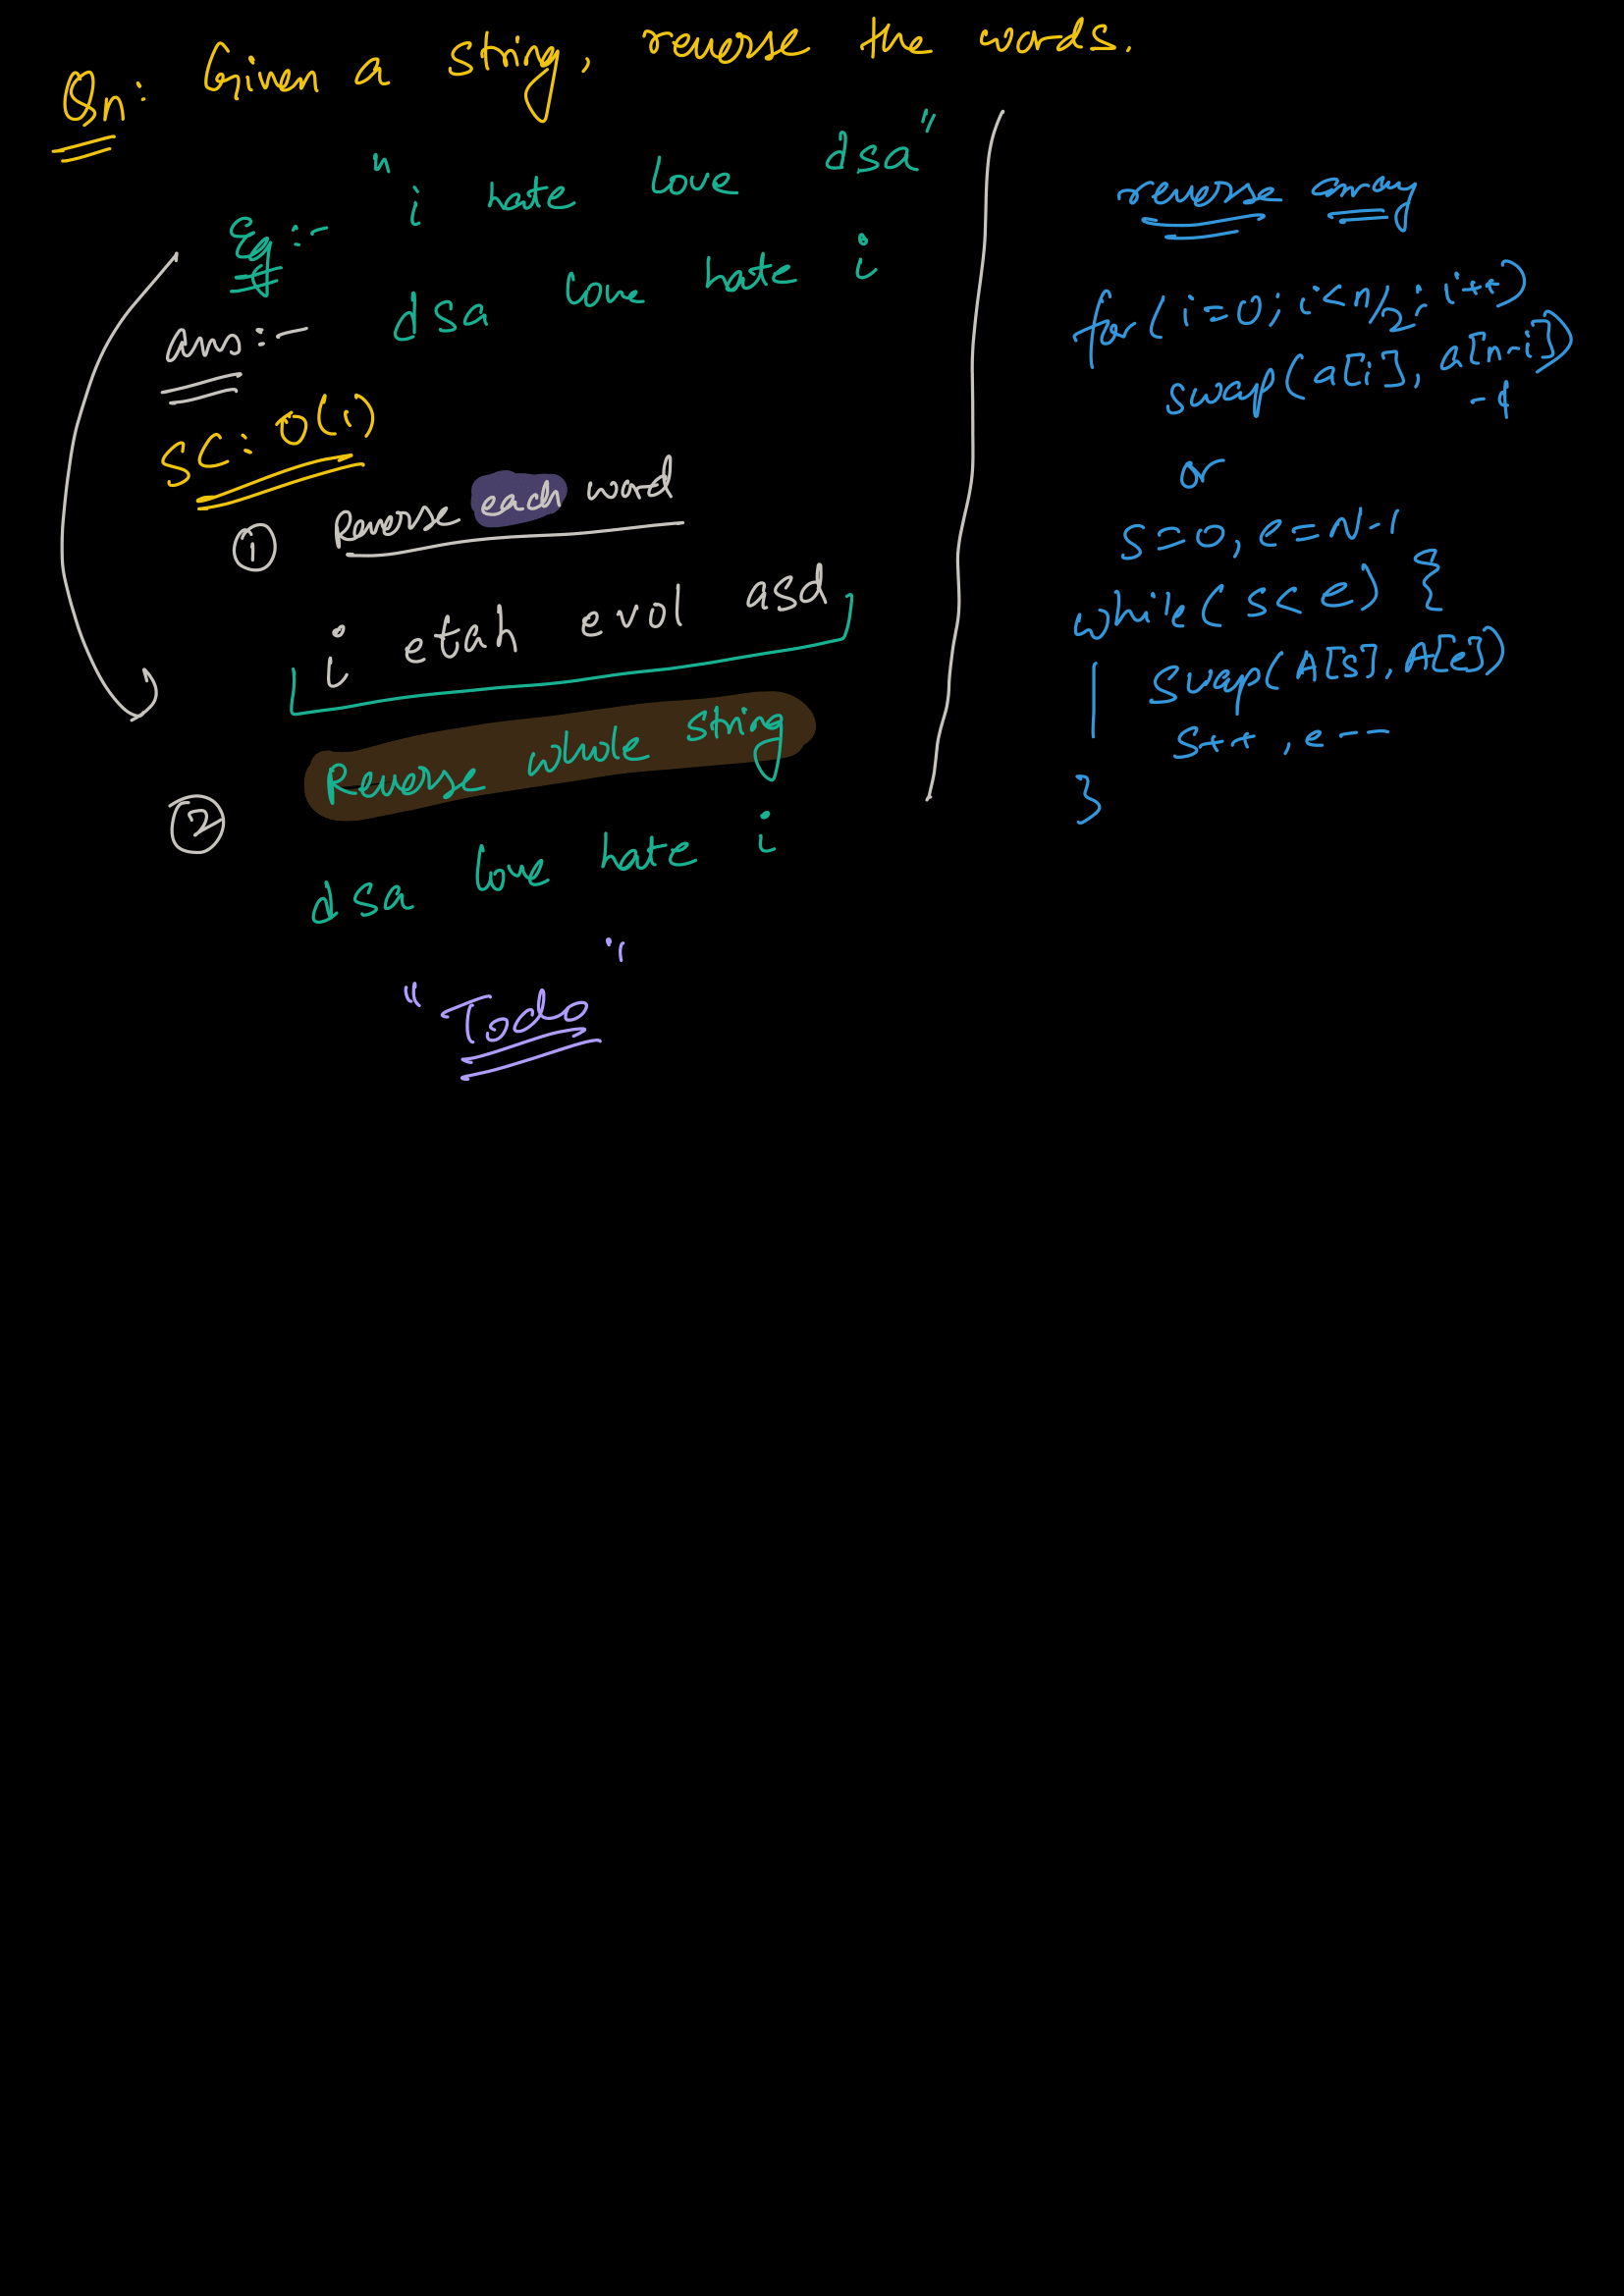 Qn: Given a string, reverse the words.
Eg :- "i hate love dsa"
ans :- dsa love hate i
SC: O(1)
① Reverse each word
i etah evol asd
② Reverse whole string
dsa love hate i
"Todo"
reverse array
for (i=0; i<n/2; i++)
swap(a[i], a[n-i])
-1
or
s=0, e=N-1
while(s<e) {
swap(A[s], A[e])
s++, e--
}